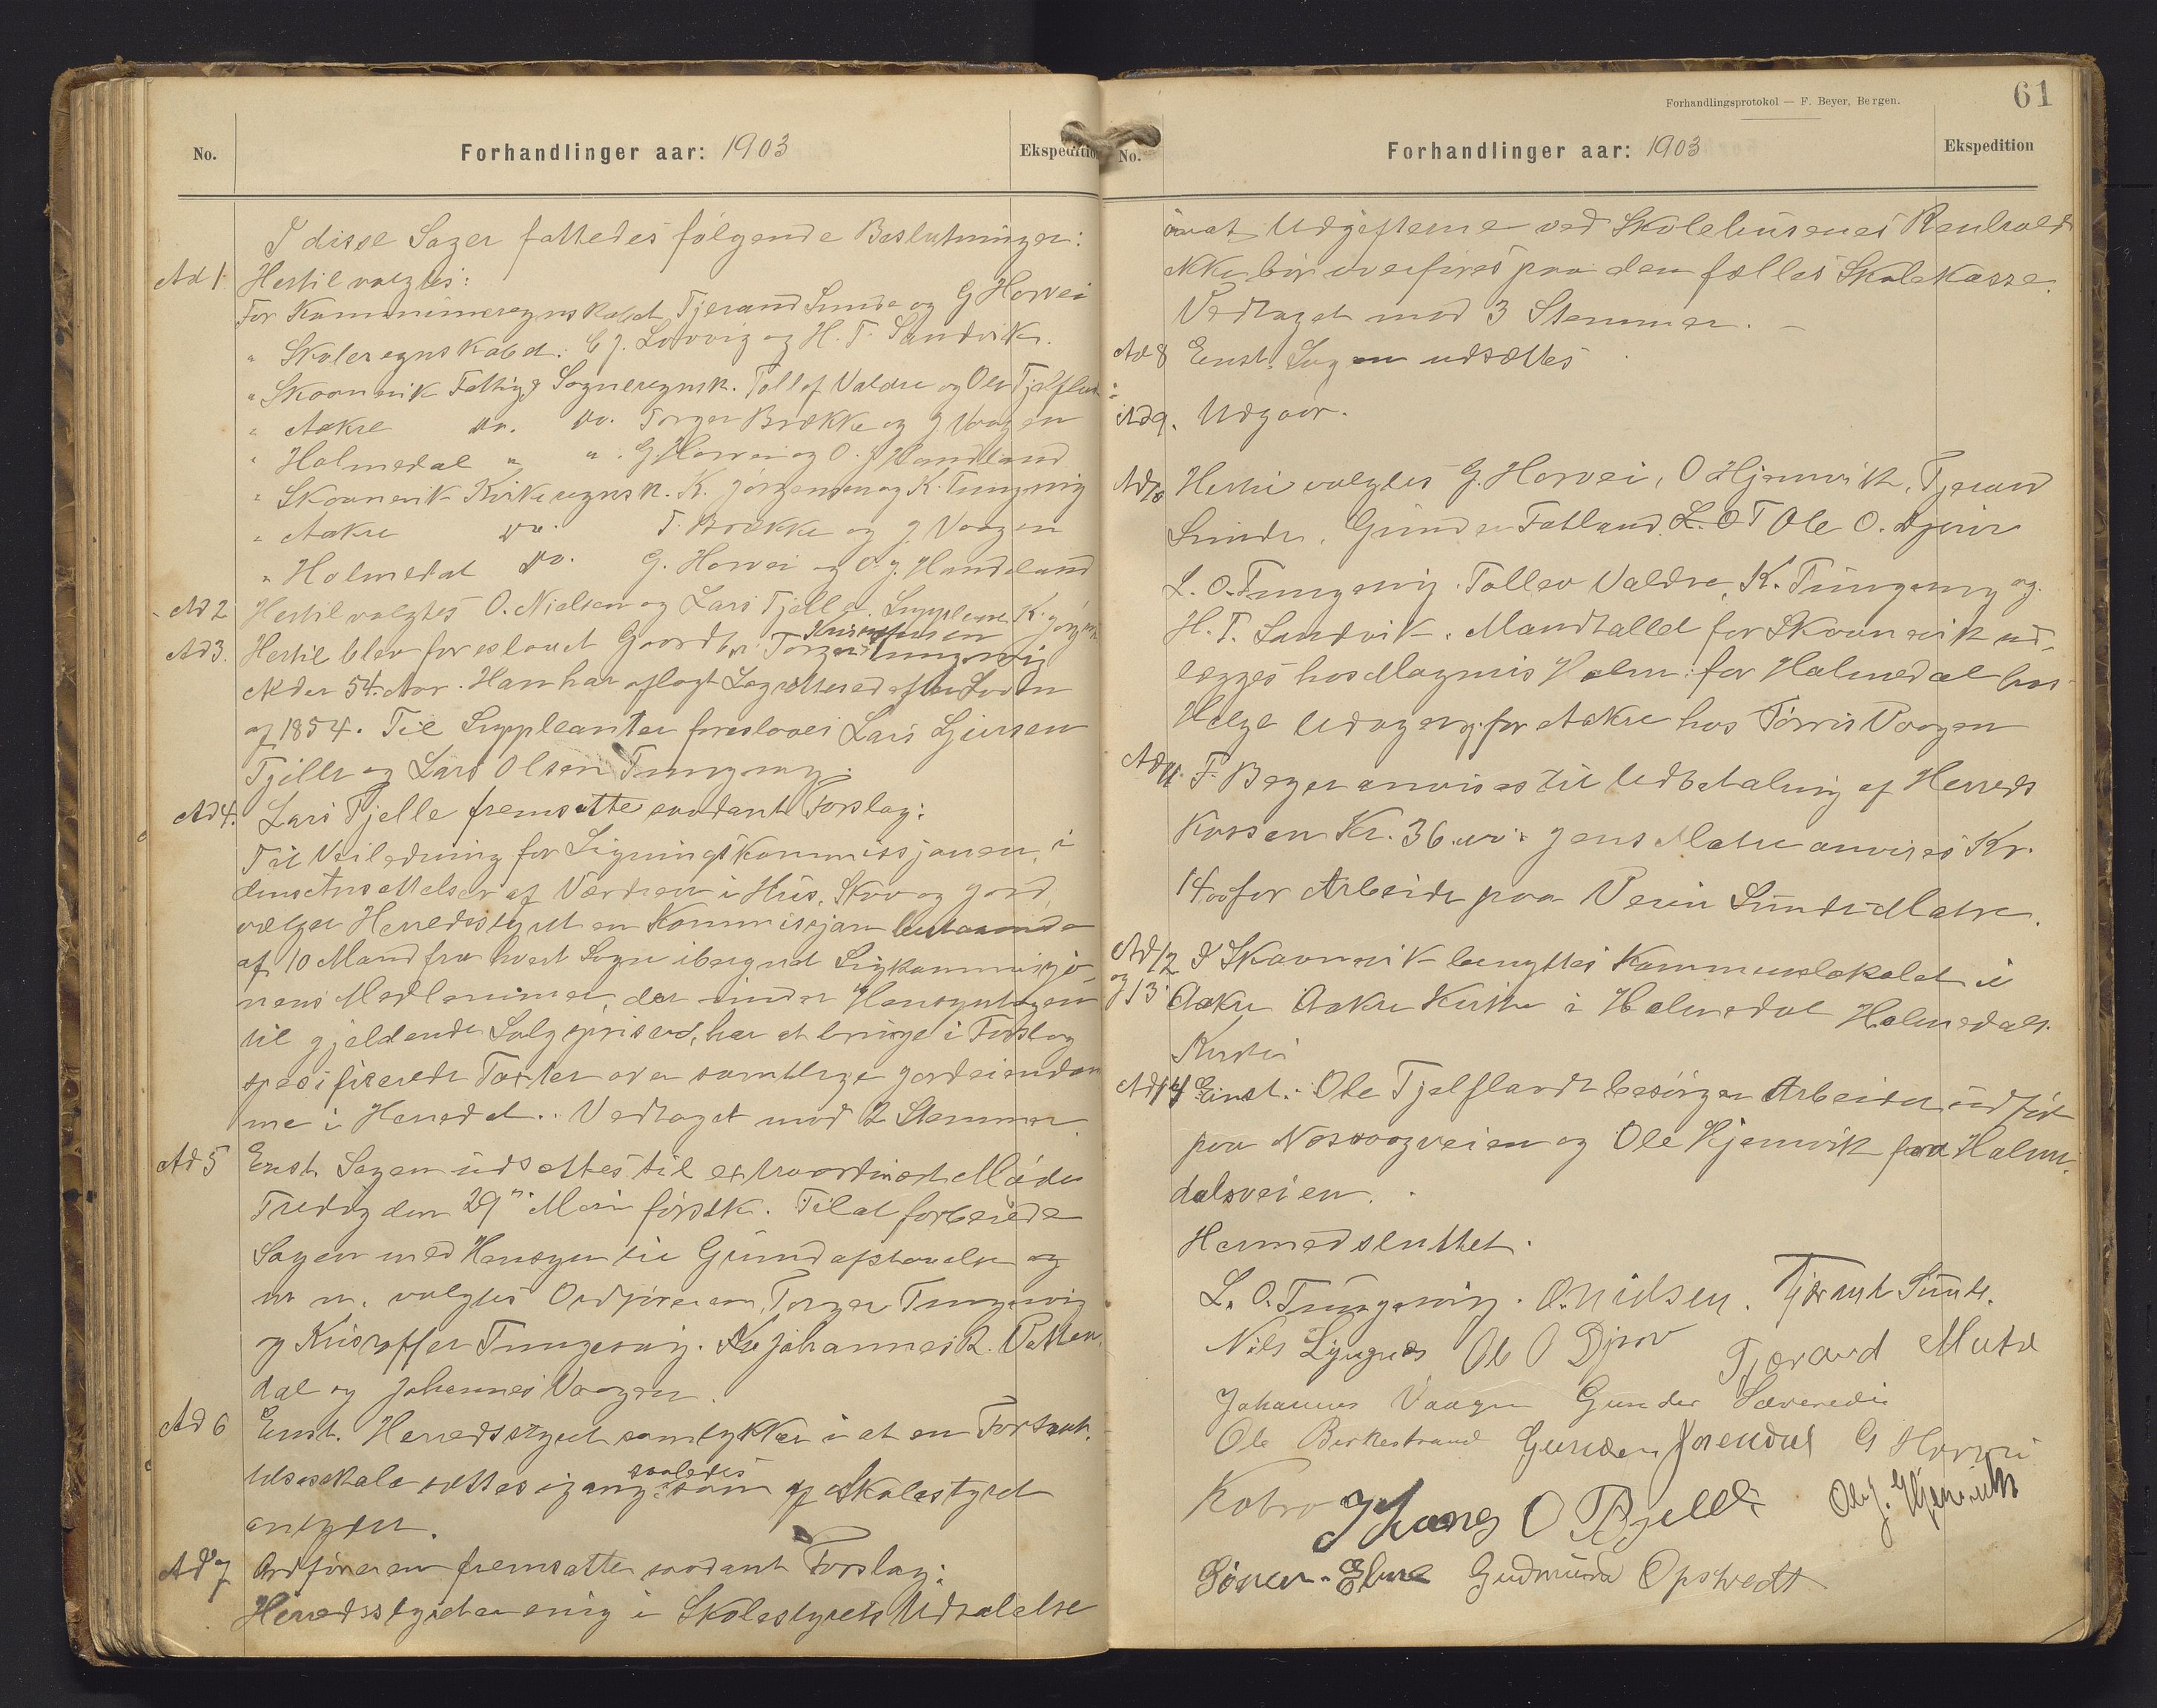 No.
Forhandlinger aar: 1903
Ekspedition
I disse Sager fattedes følgende Beslutninger:
Ad 1 Hertil valgtes:
For Kommuneregnskabet Tjerand Sunde og G Horvei
" Skoleregnskabet: C J. Lovvig og H. T. Sandvik.
" Skaanevik Fattig & Sogneregnsk. Tollef Valdre og Ole Tjelfla
" Aakre do. do. Torger Brække og J Vaagen
" Holmedal " " . G. Horvei og O. J Handeland
" Skaanevik Kirkeregnsk. K. Jørgensen og K. Tungesvig
" Aakre do. T. Brække og J Vaagen
" Holmedal do. G. Horvei og O. J. Handeland
Ad 2 Hertil valgtes O. Nielsen og Lars Tjelle. Suppleant K. Jørgens
Ad 3. Hertil blev foreslaaet Gaardbr. Torger Kristoffersen Tungesvig
Alder 54 Aar. Han har aflagt Lagretteed efter Loven
af 1854. Til Suppleanter foresloges Lars Sjursen
Tjelle og Lars Olsen Tungesvig.
Ad 4. Lars Tjelle fremsatte saadant Forslag:
Til Veiledning for Ligningskommissjonen, i
dens Ansættelser af Værdien i Hus, Skov og Jord,
vælger Herredsstyret en Kommissjon bestaaende
af 10 Mand fra hvert Sogn iberegnet Ligkommissjo
nens Medlemmer, der under Hensyntagen
til gjældende Salgspriser, har at bringe i Forslag
spesifiserede Taxter over samtlige Jordeiendom
me i Herredet. Vedtaget mod 2 Stemmer.
Ad 5 Enst. Sagen udsættes til extraordinært Møde
Fredag den 29de Mai førstk. Til at forberede
Sagen med Hensyn til Grundafstaaelse og
m m. valgtes Ordføreren, Torger Tungesvig
og Kristoffer Tungesvig. Johannes R. Vatten
dal og Johannes Vaagen.
Ad 6 Enst. Herredsstyret samtykker i at en Fortsæt
telsesskole sættes igang saaledes som af Skolestyret
antydet.
Ad 7 Ordføreren fremsatte saadant Forslag:
Herredsstyret er enig i Skolestyrets Udtalelse
Forhandlingsprotokol — F. Beyer, Bergen.
61
No.
Forhandlinger aar: 1903
Ekspedition
om at Udgifterne ved Skolehusenes Renhold
ikke bør overføres paa den fælles Skolekasse.
Vedtaget mod 3 Stemmer. –
Ad 8 Enst. Sagen udsættes
Ad 9. Udgaar.
Ad 10 Hertil valgtes G. Horvei, O Hjemvik, Tjerand
Sunde, Gunder Fatland, Ole O. Djuv
L. O. Tungesvig. Tollev Valdre, K. Tungesvig og
H. T. Sandvik. Mandtallet for Skaanevik ud-
lægges hos Magnus Holm: for Holmedal hos
Helge Udvaage: for Aakre hos Tørris Vaagen
Ad 11. F. Beyer anvises til Udbetaling af Herreds
kassen Kr. 36.00: Jens Matre anvises Kr.
14.00 for Arbeide paa Veien Sunde-Matre.
Ad 12 og 13: I Skaanevik benyttes Kommunelokalet i
Aakre Aakre Kirke i Holmedal Holmedals
Kirke
Ad 14 Enst.: Ole Tjelflaardt besørger Arbeidet udført
paa Nesvaagveien og Ole Hjemvik paa Holme-
dalsveien.
Hermed sluttet.
L. O. Tungesvig. O. Nielsen. Tjerand Sunde.
Nils Ljugnes Ole O Djuv Tjerand Matre
Johannes Vaagen Gunder Sævereide
Ole Birkestrand Gunder G Horvei
Lars O Tjelle Ole J. Hjemvik
Sønen Ebne Gudmund Opstvedt